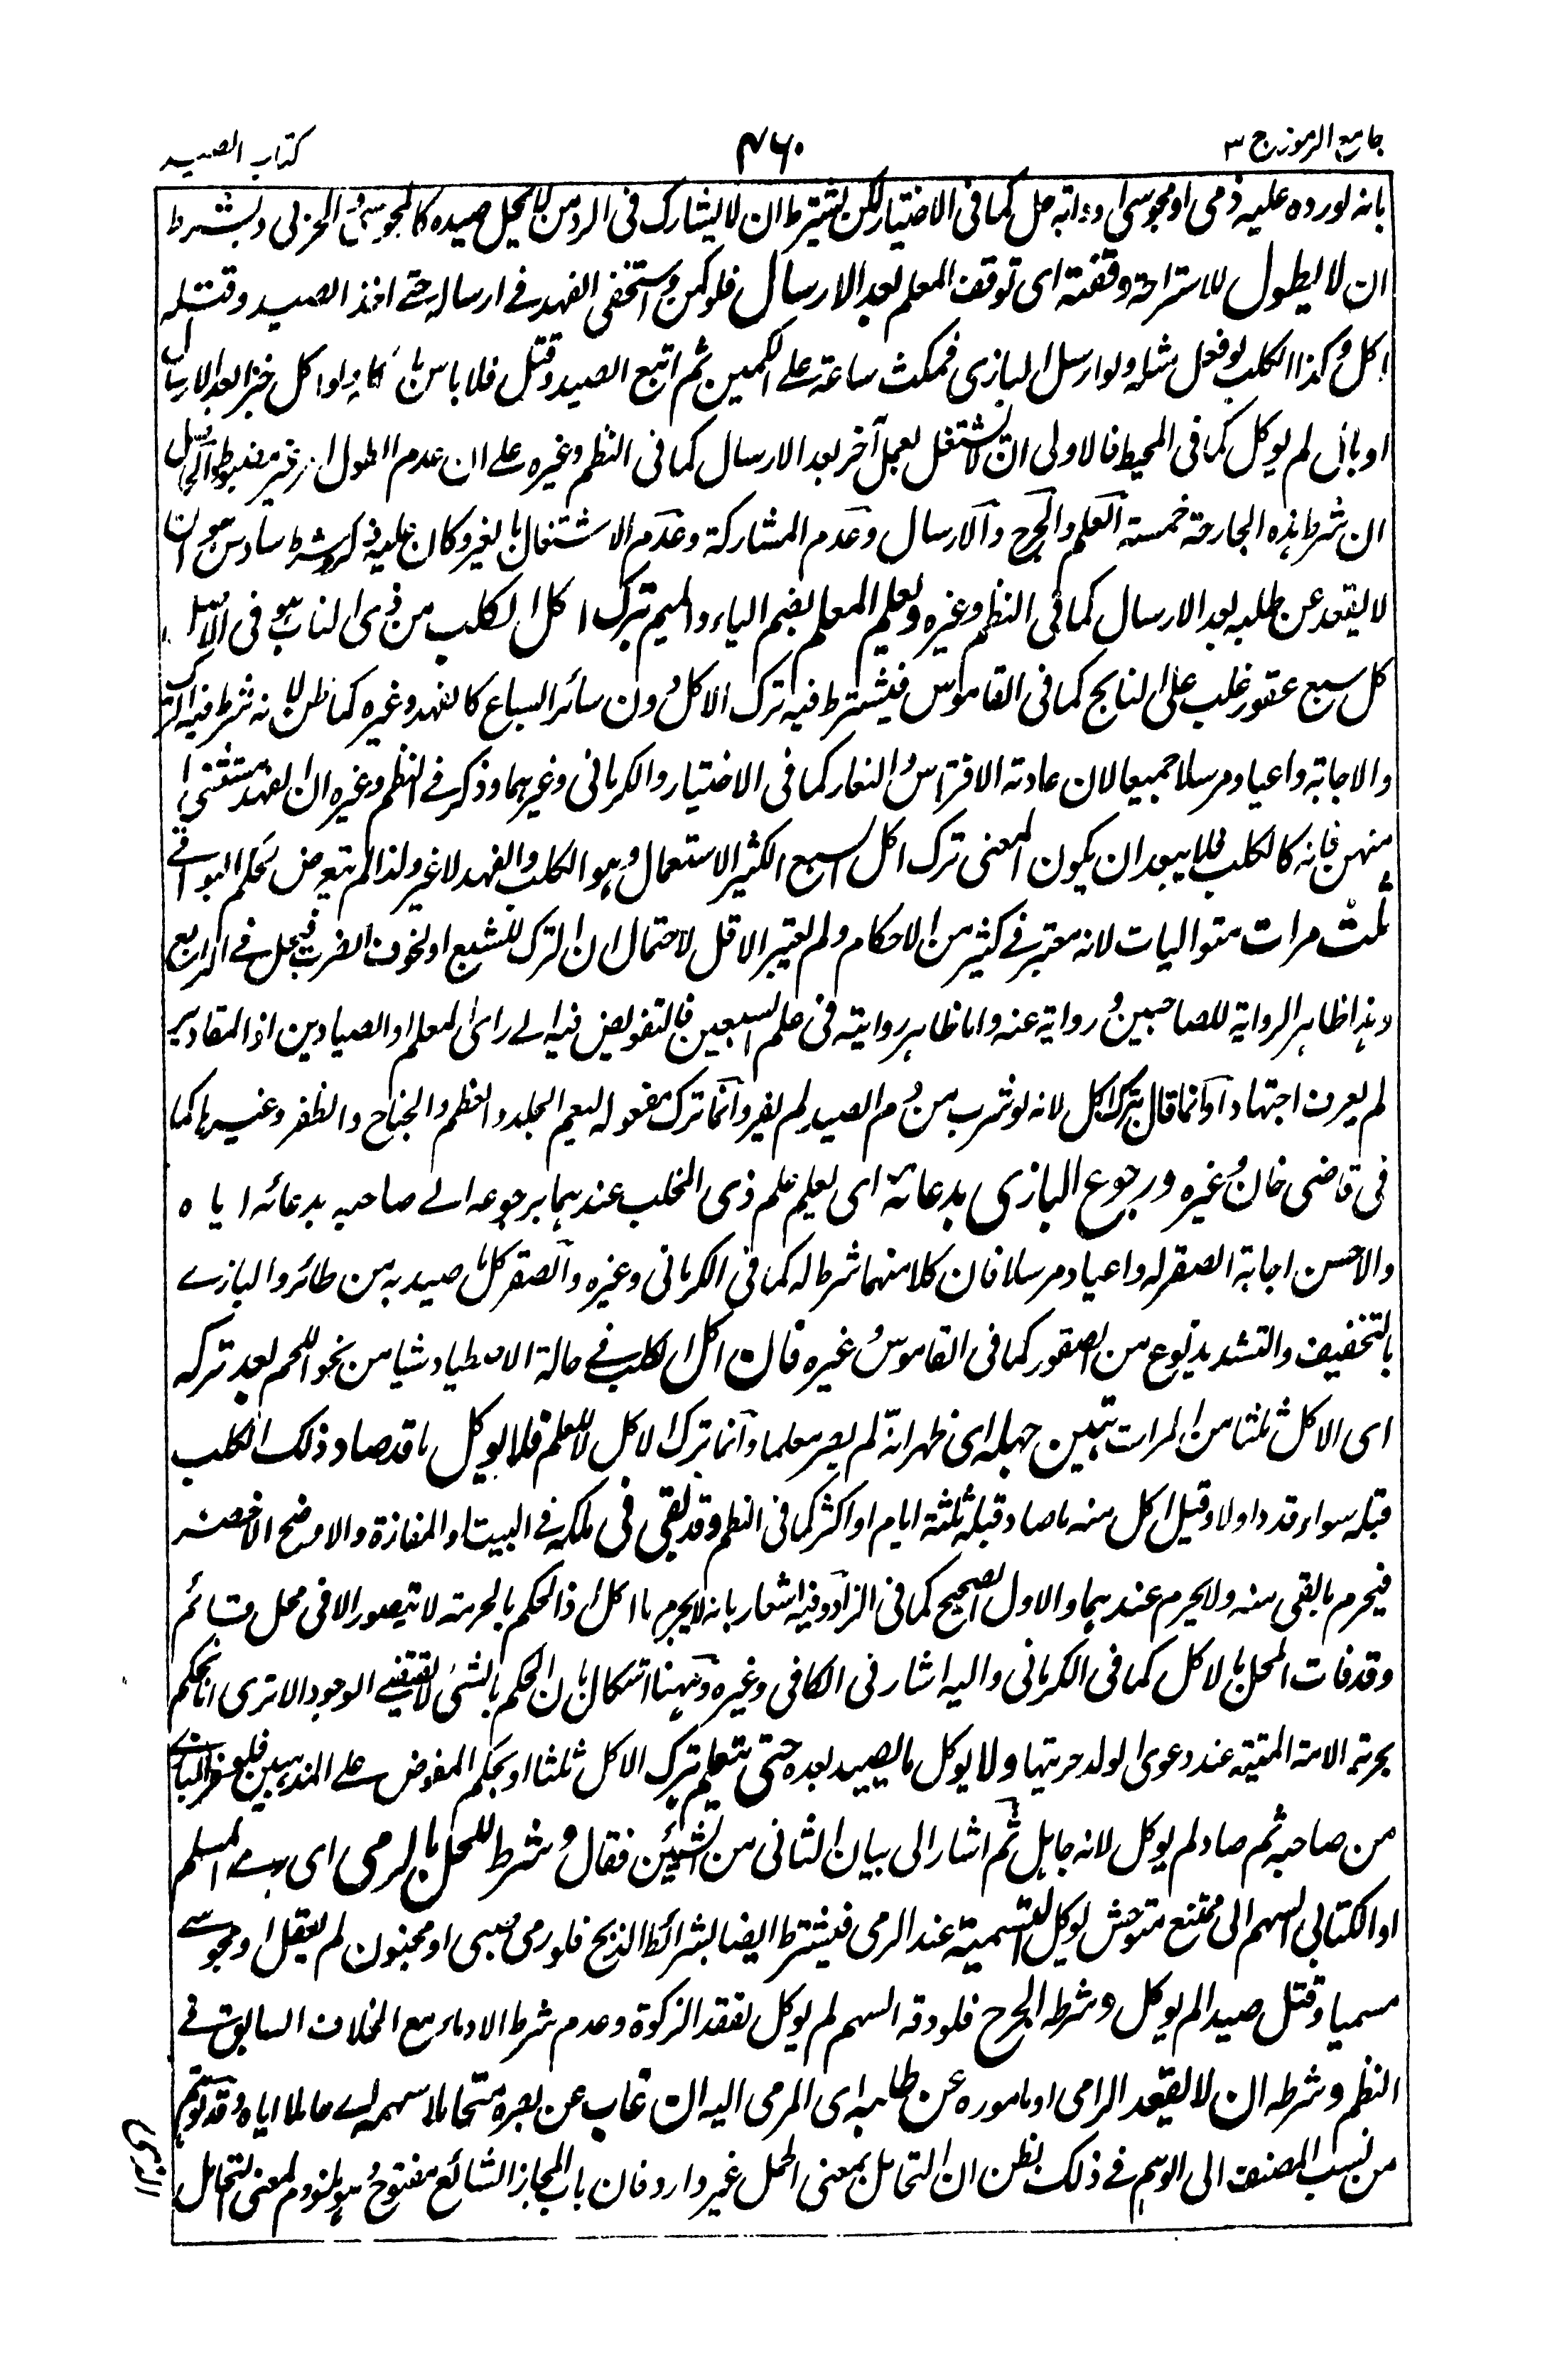 جامع الرموز ج ٣
٤٦٠
كتاب الصيد
بانه لو رده عليه ذمى او مجوسى او دابة حل كما فى الاختيار لكن يشترط ان لا يشارك فى الرد من لا يحل صيده كالمجوسى والحربى ويشترط
ان لا يطول للاستراحة وقفته اى توقف المعلم بعد الارسال فلو كمن واستخفى الفهد فى ارساله حتى اخذ الصيد وقتله
اكل وكذا الكلب لو فعل مثله ولو ارسل البازى فمكث ساعة على الكمين ثم اتبع الصيد وقتل فلا باس باكله ولو اكل خبزا بعد الارسال
او بال لم يوكل كما فى المحيط فالاولى ان لا يشتغل بعمل آخر بعد الارسال كما فى النظم وغيره على ان عدم الطول امر غير مضبوط والحاصل
ان شرط هذه الجارحة خمسة العلم والجرح والارسال وعدم المشاركة وعدم الاشتغال بالغير وكان عليه ذكر شرط سادس هو ان
لا يقعد عن طلبه بعد الارسال كما فى النظم وغيره ويعلم المعلم بضم الياء والميم بترك اكل الكلب من ذى الناب هو فى الاصل
كل سبع عقور غلب على النابح كما فى القاموس فيشترط فيه ترك الاكل دون سائر السباع كالفهد وغيره كما ظن لانه شرط فيه الترك
والاجابة داعيا ومرسلا جميعا لان عادته الافتراس والنفار كما فى الاختيار والكرمانى وغيرهما وذكر فى النظم وغيره ان الفهد مستثنى
منهن فانه كالكلب فلا يبعد ان يكون المعنى ترك اكل السبع الكثير الاستعمال وهو الكلب والفهد لا غير ولذا لم يتعرض لحكم البواقى
ثلث مرات متواليات لانه معتبر فى كثير من الاحكام ولم يعتبر الاقل لاحتمال ان الترك للشبع او لخوف الضرب فيحل فى الرابع
وهذا ظاهر الرواية للصاحبين ورواية عنه واما ظاهر روايته فى علم السبعين فالتفويض فيه الى راى المعلم او الصيادين اذ المقادير
لم يعرف اجتهادا وانما قال بترك اكل لانه لو شرب من دم الصيد لم يضر وانما ترك مفعوله ليعم الجلد والعظم والجناح والظفر وغيرها كما
فى قاضى خان وغيره ورجوع البازى بدعائه اى يعلم علم ذى المخلب عندهما برجوعه الى صاحبه بدعائه اياه
والاحسن اجابة الصقر له داعيا ومرسلا فان كلا منهما شرط له كما فى الكرمانى وغيره والصقر كل ما صيد به من طائر والبازى
بالتخفيف والتشديد نوع من الصقور كما فى القاموس وغيره فان اكل الكلب فى حالة الاصطياد شيا من نحو اللحم بعد تركه
اى الاكل ثلثا من المرات تبين جهله اى ظهر انه لم يصر معلما وانما ترك الاكل لا للعلم فلا يوكل ما قد صاد ذلك الكلب
قبله سواء قدد اولا وقيل اكل منه ما صاد قبله ثلثة ايام او اكثر كما فى النظم وقد بقى فى ملكه فى البيت او المفازة والاوضح الاخصر
فيحرم ما بقى منه ولا يحرم عندهما والاول الصحيح كما فى الزاد وفيه اشعار بانه لا يحرم ما اكل اذ الحكم بالحرمة لا يتصور الا فى محل قائم
وقد فات المحل بالاكل كما فى الكرمانى واليه اشار فى الكافى وغيره وههنا اشكال بان الحكم بالشئ لا يقتضى الوجود الا ترى انا نحكم
بحرية الامة الميتة عند دعوى الولد حريتها ولا يوكل ما يصيد بعده حتى يتعلم بترك الاكل ثلثا او بحكم المفوض على المذهبين فلو فر البازى
من صاحبه ثم صاد لم يوكل لانه جاهل ثم اشار الى بيان الثانى من الشيئين فقال وشرط للحل بالرمى اى رمى المسلم
او الكتابى السهم الى ممتنع متوحش يوكل التسمية عند الرمى فيشترط ايضا بشرائط الذبح فلو رمى صبى او مجنون لم يعقل او مجوسى
مسميا وقتل صيدا لم يوكل وشرطه الجرح فلو دقه السهم لم يوكل لفقد الذكوة وعدم شرط الادماء مع الخلاف السابق فى
النظم وشرطه ان لا يقعد الرامى او ماموره عن طلبه اى المرمى اليه ان غاب عن بصره متحاملا سهمه اى حاملا اياه وقد توهم
من نسب المصنف الى الوهم فى ذلك بظن ان التحامل بمعنى الحمل غير وارد فان باب المجاز الشائع مفتوح وهو ملزوم لمعنى التحامل
الذى